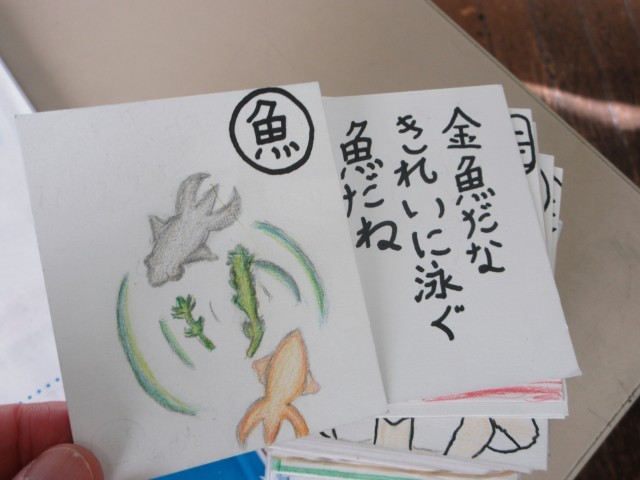 魚
金魚だな
きれいに泳ぐ
魚だね